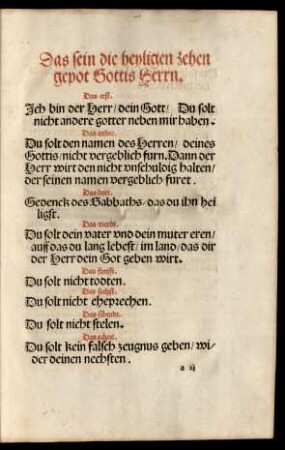 Das sein die heyligen zehen
gepot Gottis Herrn.
Das erst.
Ich bin der Herr/ dein Gott/ Du solt
nicht andere gotter neben mir haben.
Das ander.
Du solt den namen des Herren/ deines
Gottis/ nicht vergeblich furn. Dann der
Herr wirt den nicht vnschuldig halten/
der seinen namen vergeblich furet.
Das drit.
Gedenck des Sabbaths/ das du ihn hei
ligst.
Das vierdt.
Du solt dein vater vnd dein muter eren/
auff das du lang lebest/ im land/ das dir
der Herr dein Got geben wirt.
Das funfft.
Du solt nicht todten.
Das sechst.
Du solt nicht eheprechen.
Das sibendt.
Du solt nicht stelen.
Das achtet.
Du solt kein falsch zeugnus geben/ wi/
der deinen nechsten.
a iij